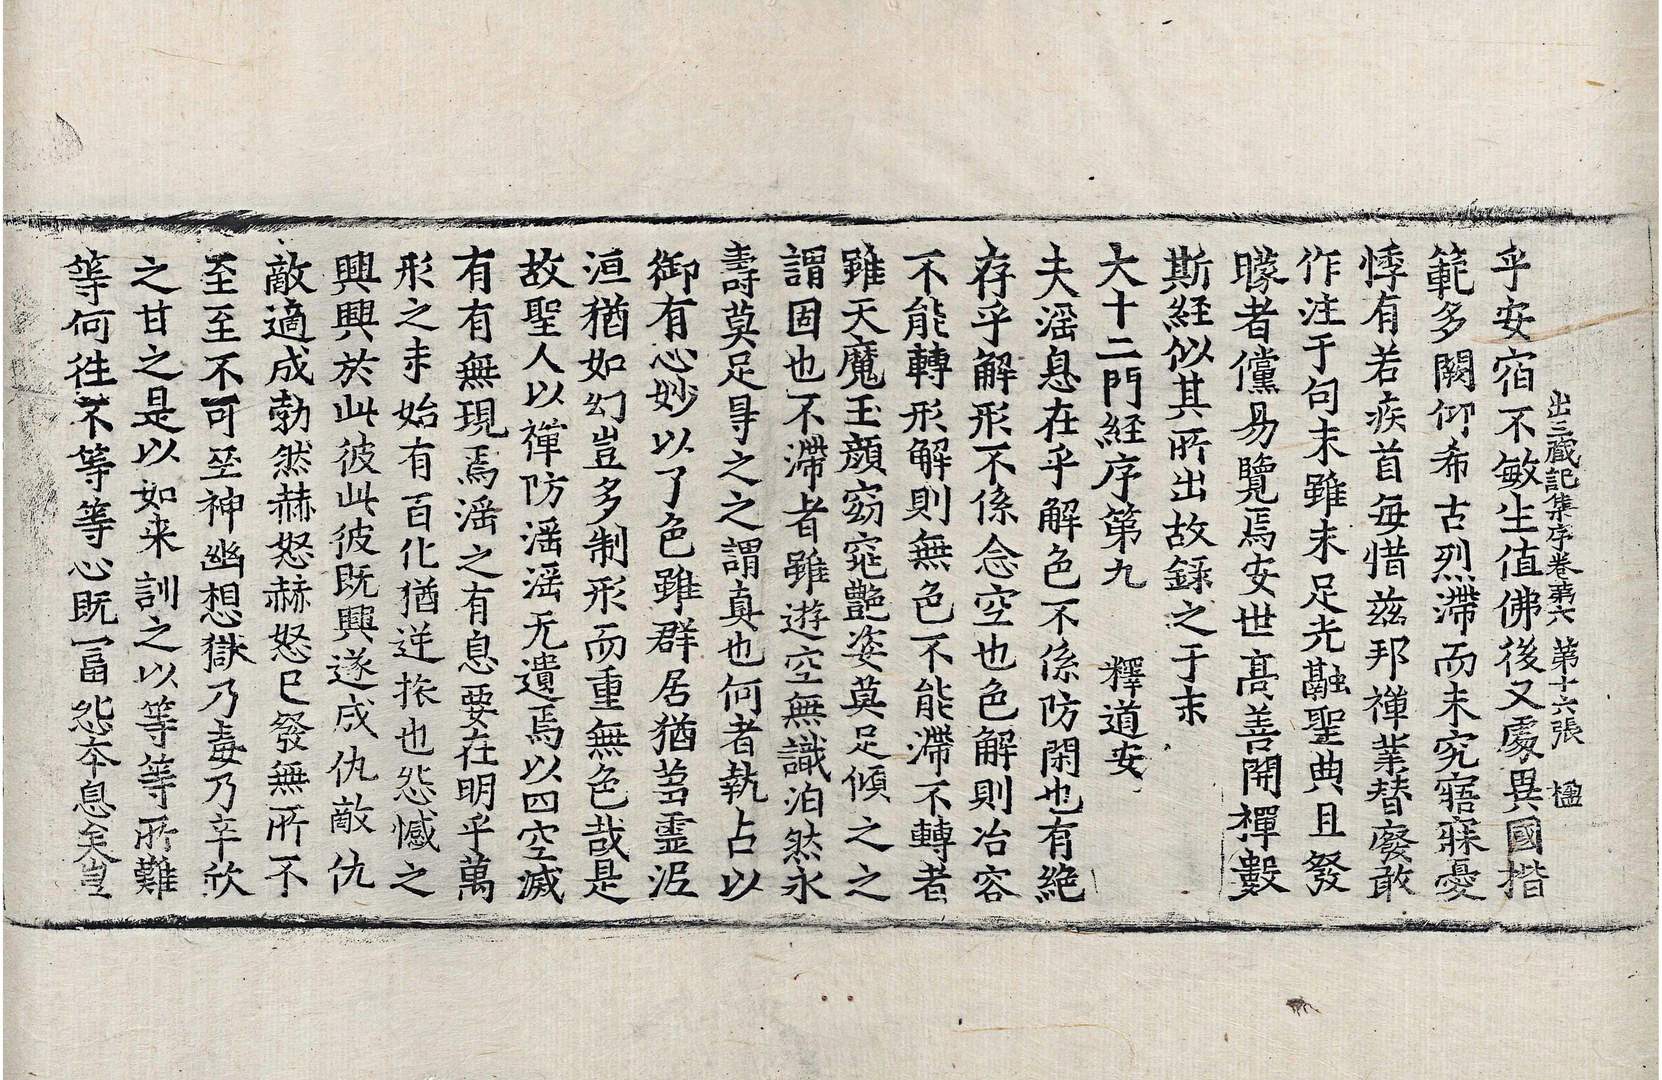 出三藏記集序卷第六　第十六張　楹
乎安宿不敏生值佛後又處異國楷
範多闕仰希古烈滯而未究寤寐憂
悸有若疾首每惜兹邦禪業替廢敢
作注于句末雖未足光融聖典且發
矇者儻易覽焉安世高善開禪數
斯経似其所出故録之于末
大十二門経序第九　釋道安
夫滛息在乎解色不係防閑也有絶
存乎解形不係念空也色解則冶容
不能轉形解則無色不能滯不轉者
雖天魔玉顔窈窕艶姿莫足傾之之
謂固也不滯者雖遊空無識泊然永
壽莫足㝵之之謂真也何者執古以
御有心妙以了色雖群居猶芻靈泥
洹猶如幻豈多制形而重無色哉是
故聖人以禪防滛滛无遺焉以四空滅
有有無現焉滛之有息要在明乎萬
形之未始有百化猶逆旅也怨憾之
興興於此彼此彼既興遂成仇敵仇
敵適成勃然赫怒赫怒已發無所不
至至不可至神幽想獄乃毒乃辛欣
之甘之是以如来訓之以等等所難
等何往不等等心既富怨本息矣豈